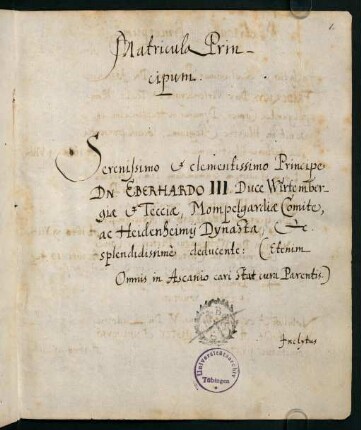 Matricula Prin-
cipum.
Serenissimo & clementissimo Principe
DN EBERHARDO III. Duce Würtember-
giæ & Tecciæ, Mompelgardiæ Comite,
ac Heidenheimij Dynasta, &c.
splendidissimè deducente: (Etenim
Omnis in Ascanio cari stat cura Parentis.)
Universitätsarchiv
Tübingen
Inclytus